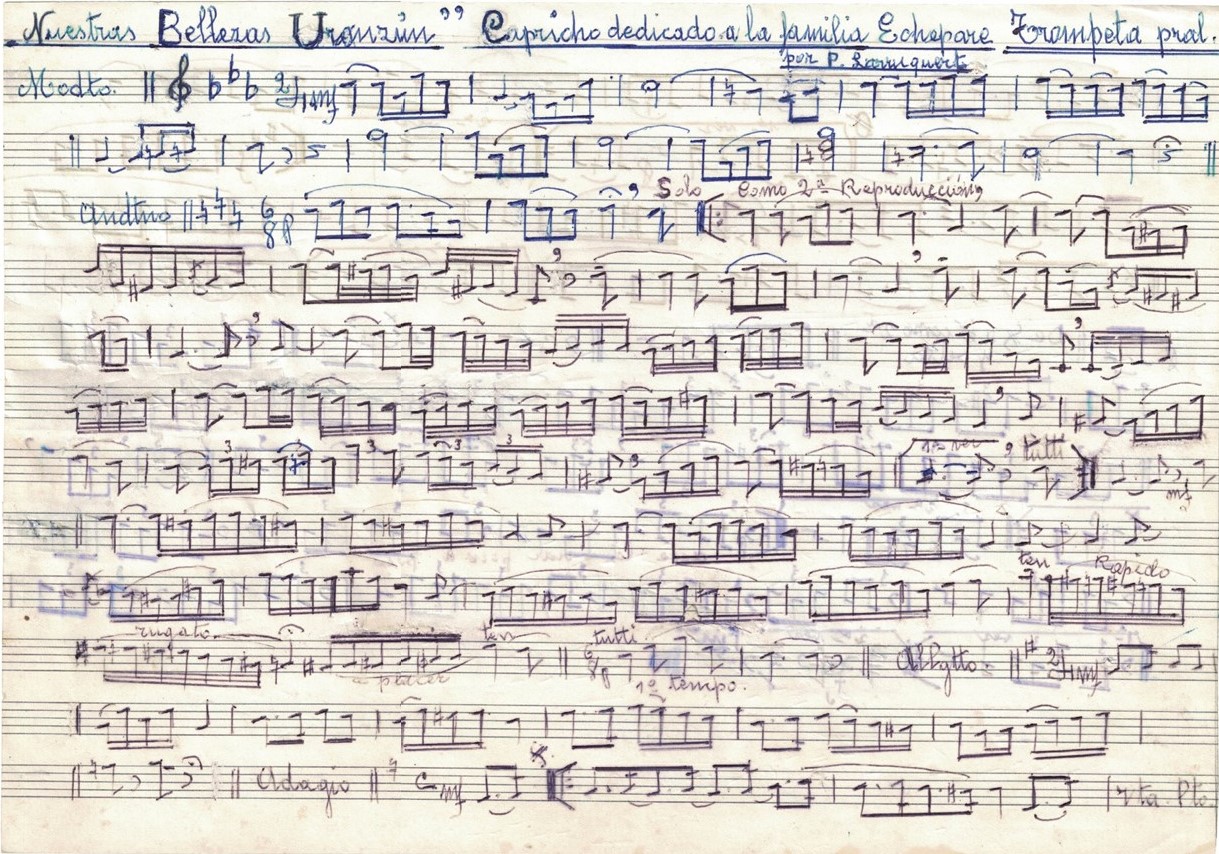 Nuestras Bellezas Uranzún" Capricho dedicado a la familia Echepare Trompeta pral.
por P. Larruquert
Modto. 2/4 mf
Andtno 6/8 p Solo Como 2ª Reproducción
3 3 3 3 3 1ª vez tutti mf
ten Rapido
rugato a placer ten tutti 6/8 p 1º tempo. Allgtto. 2/4 mf
Adagio C mf Vta. Pto.